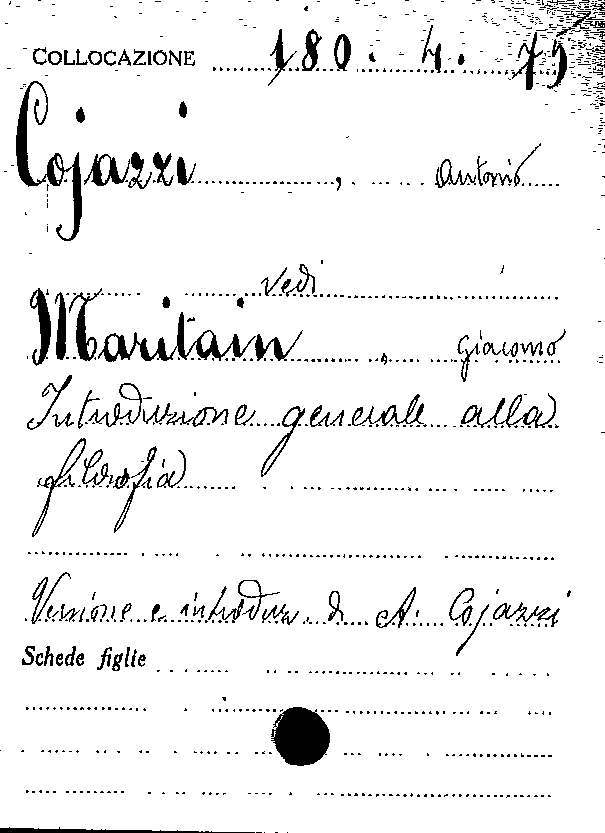 COLLOCAZIONE 180. 4. 75
Cojazzi, Antonio
vedi
Maritain, Giacomo
Introduzione generale alla
filosofia
Versione e introduz. di A. Cojazzi
Schede figlie